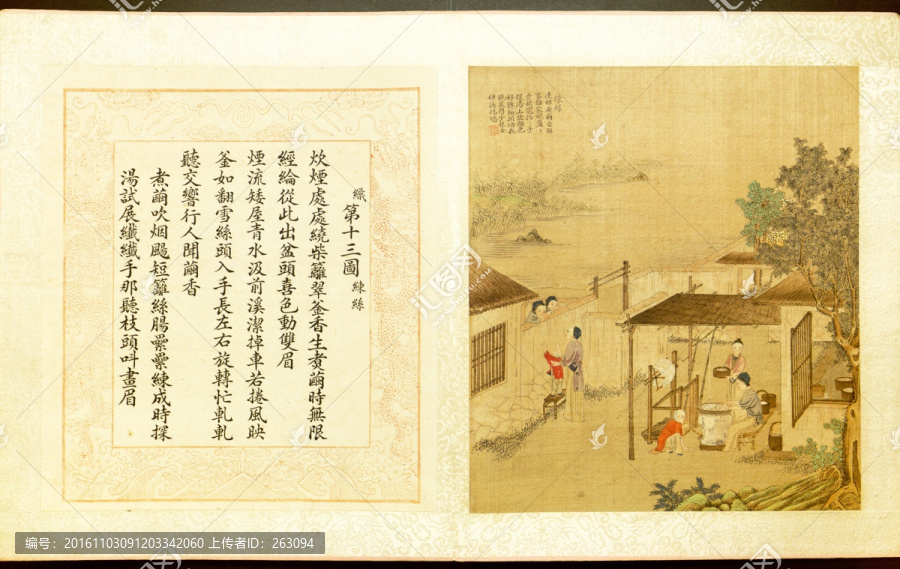 織
第十三圖 練絲
炊煙處處繞柴籬翠釜香生煮繭時無限
經綸從此出盆頭喜色動雙眉
煙流矮屋青水汲前溪潔掉車若捲風映
釜如翻雪絲頭入手長左右旋轉忙軋軋
聽交響行人聞繭香
煮繭吹烟颺短籬絲腸纍纍練成時探
湯試展纖纖手那聽枝頭叫畫眉
練絲
编号：20161103091203342060 上传者ID：263094
汇图网